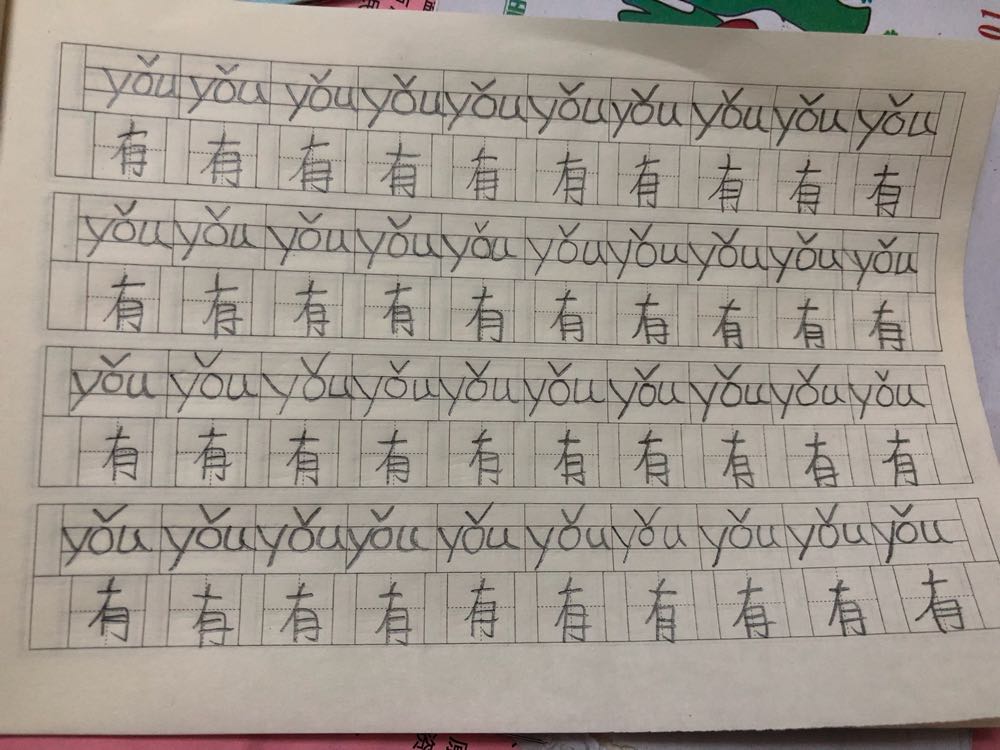 yǒu yǒu yǒu yǒu yǒu yǒu yǒu yǒu yǒu yǒu
有 有 有 有 有 有 有 有 有 有
yǒu yǒu yǒu yǒu yǒu yǒu yǒu yǒu yǒu yǒu
有 有 有 有 有 有 有 有 有 有
yǒu yǒu yǒu yǒu yǒu yǒu yǒu yǒu yǒu yǒu
有 有 有 有 有 有 有 有 有 有
yǒu yǒu yǒu yǒu yǒu yǒu yǒu yǒu yǒu yǒu
有 有 有 有 有 有 有 有 有 有